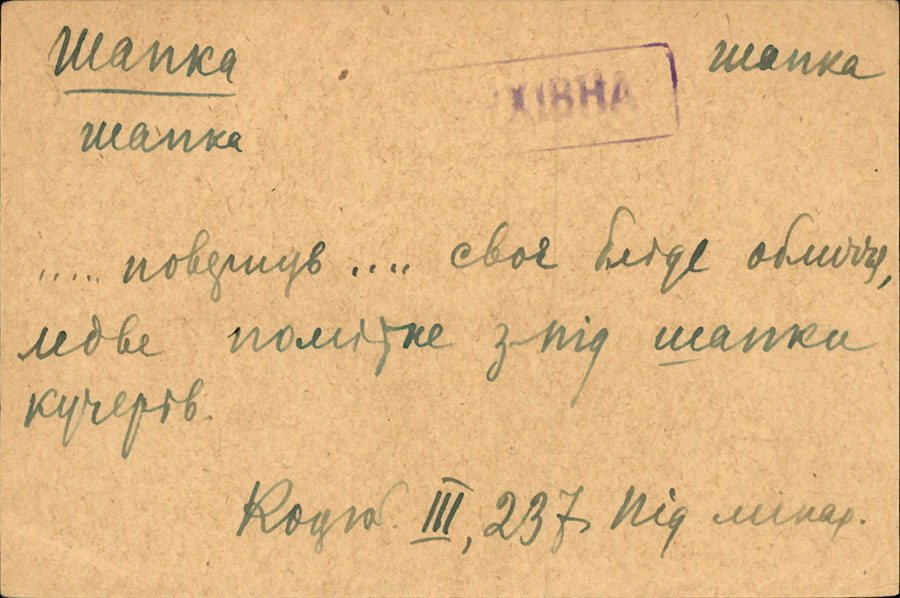 Шапка
ХІВНА
шапка
шапка
..... повернув .... своє бліде обличчя,
ледве помітне з-під шапки
кучерів.
Коцюб. III, 237, Під мінар.